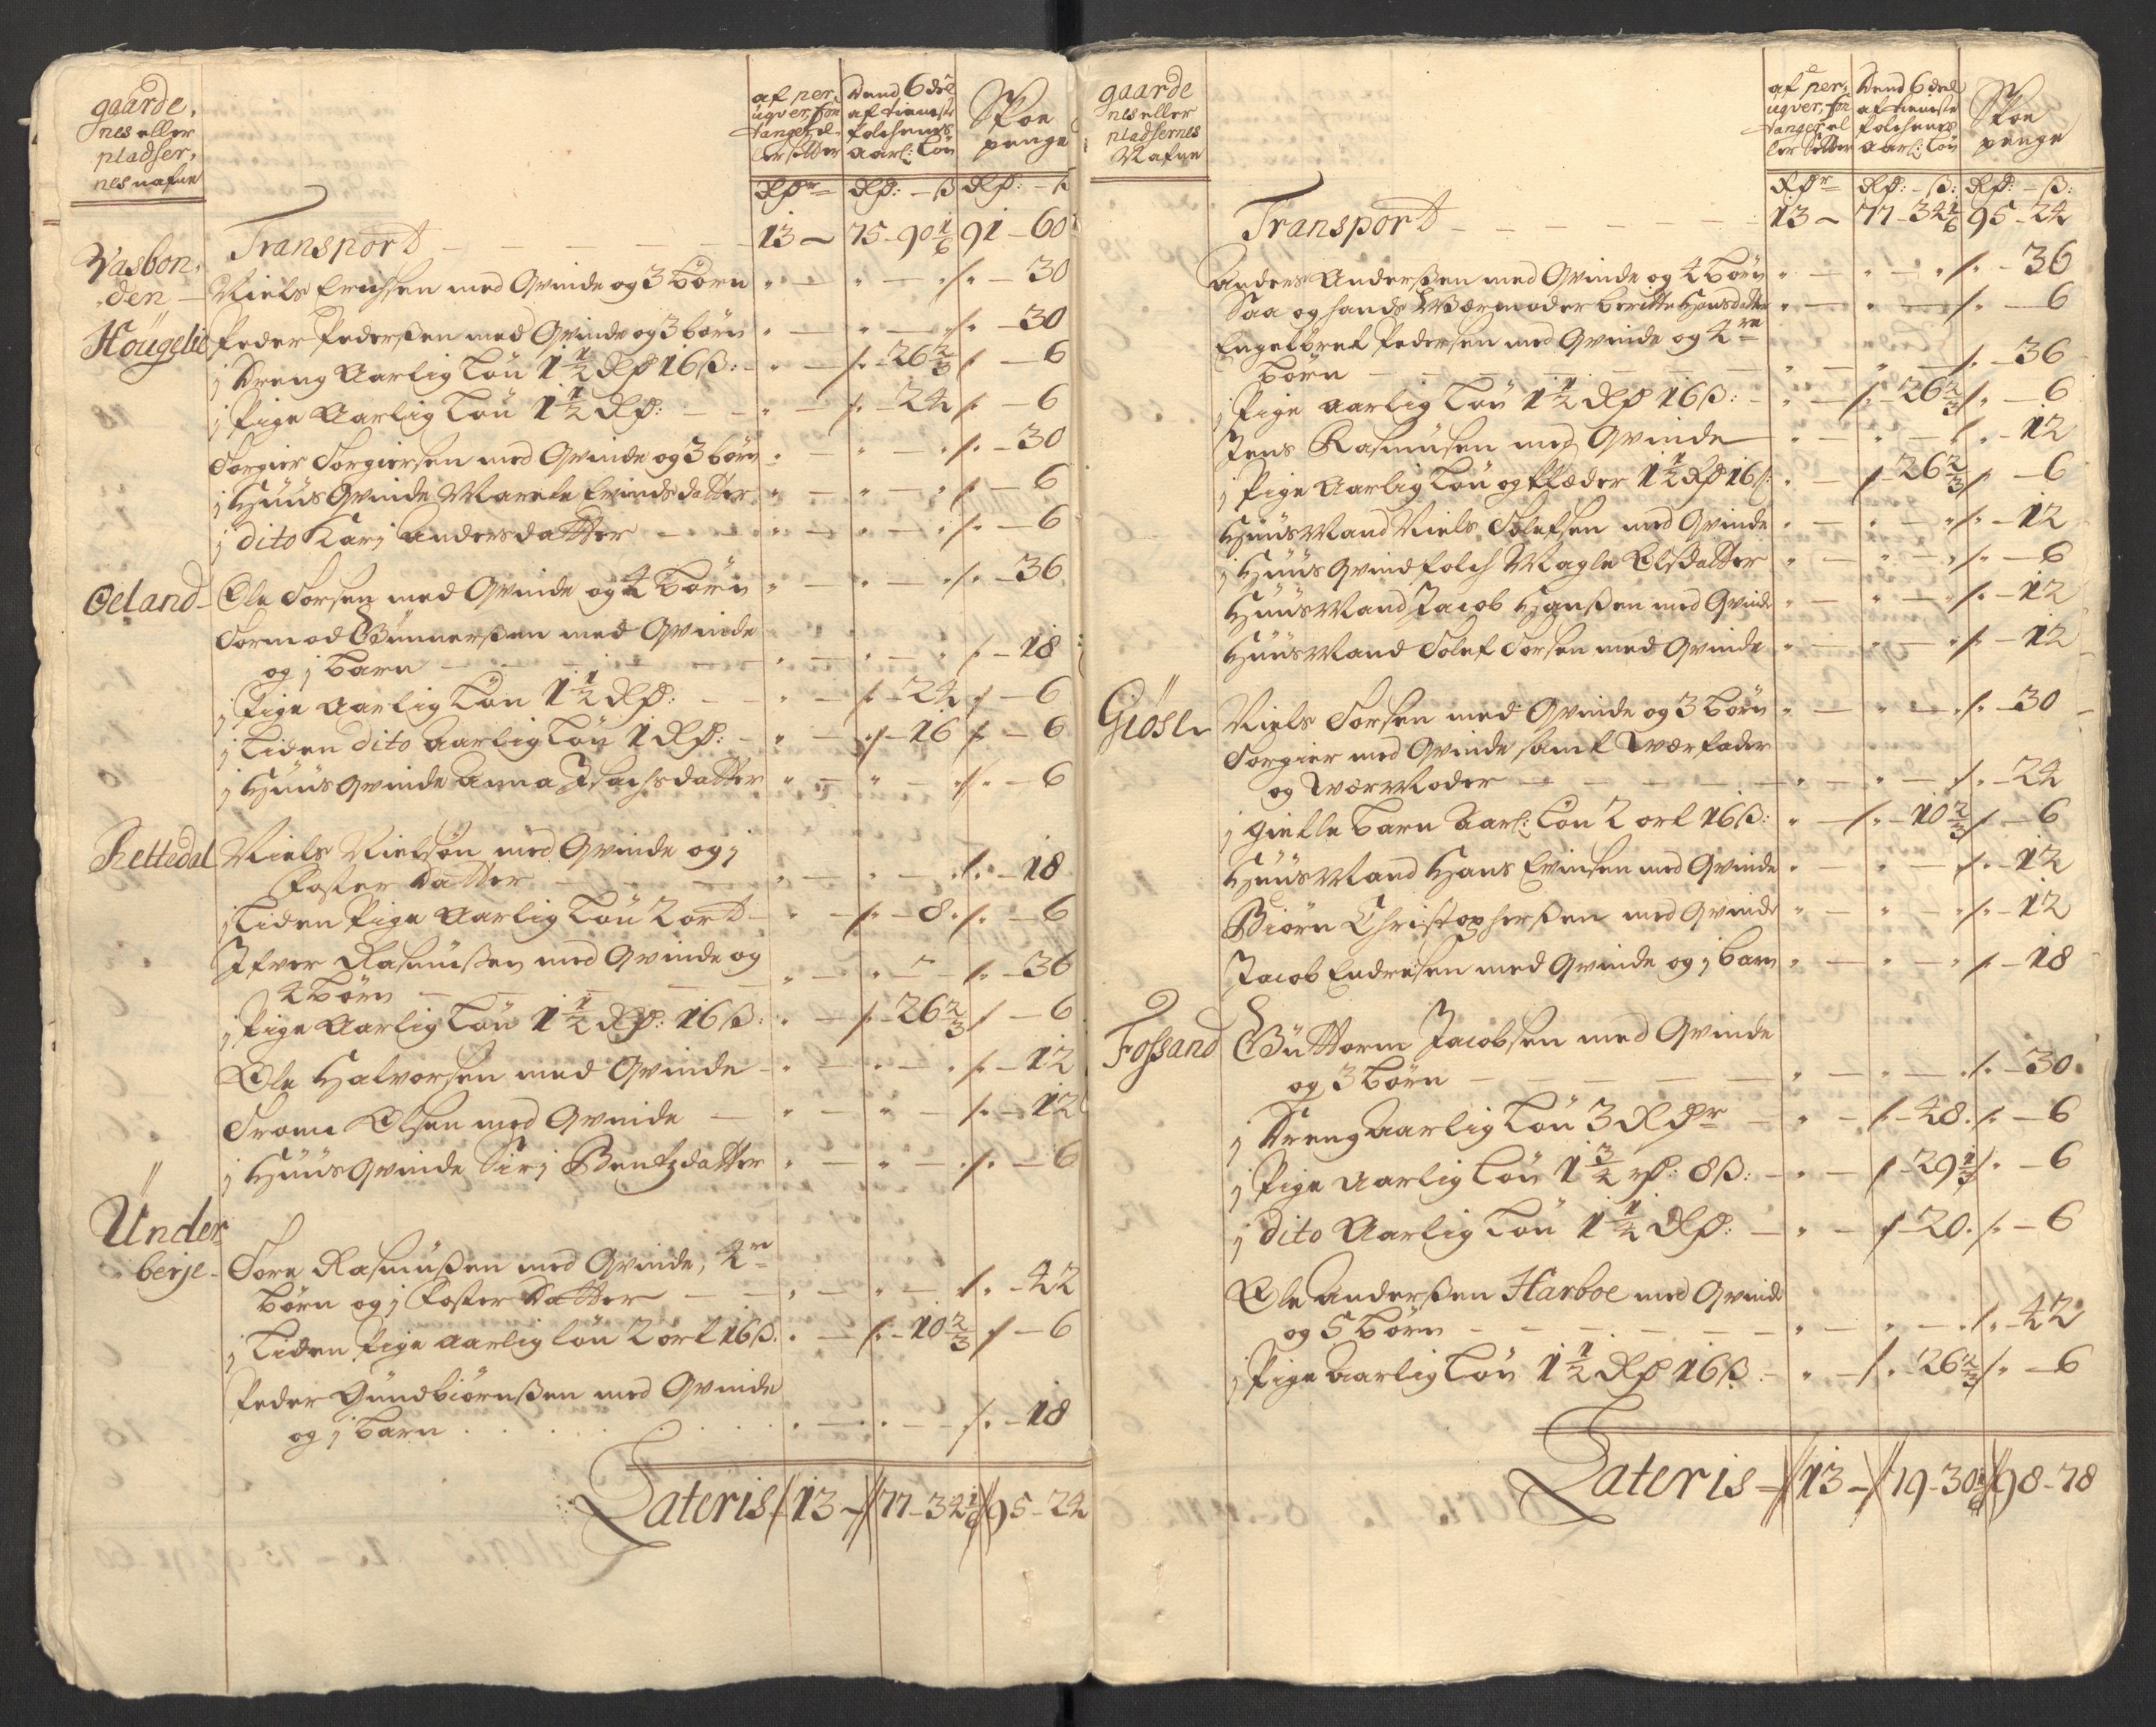 gaarde,
nes eller
pladser,
nes nafne
af per,
uqver, fon
tanger, el
ler setter
Dend 6 del
af tieneste
folchenes
Aarl: Løn
Skoe
penge
Rdr Rd: - ß Rd: - ß
Transport 13 - 75 - 90 1/6 91 - 60
Vasbon,
den - Niels Erichsen med Qvinde og 3 børn " - " - " /. - 30
Hougelie Peder Pederßen med Qvinde og 3 børn " - " - " /. - 30
j Dreng Aarlig Løn 1 1/2 Rd 16 ß: " - /. - 26 2/3 /. - 6
j Pige Aarlig Løn 1 1/2 Rd: - " - /. - 24 /. - 6
Torgier Torgiersen med Qvinde og 3 børn " - " - " /. - 30
j Huus Qvinde Marete Evindsdatter " - " - " /. - 6
j dito Karj Andersdatter - " - " - " /. - 6
Oeland - Ole Torsen med Qvinde og 4 børn " - " - " /. - 36
Tormod Gunnerßen med Qvinde
og j barn " - " - " /. - 18
j Pige Aarlig Løn 1 1/2 Rd: - " - /. - 24 /. - 6
j Liden dito Aarlig Løn 1 Rd: - " - /. - 16 /. - 6
j Huus Qvinde Anna Isachsdatter " - " - " /. - 6
Rettedal Niels Nielsøn med Qvinde og j
Foster Datter - " - " - " /. - 18
j Liden Pige Aarlig Løn 2 ort - " - /. - 8 . /. - 6
Ifver Rasmußen med Qvinde og
4 børn - " - " - " /. - 36
j Pige Aarlig Løn 1 1/2 Rd: 16 ß: " - /. - 26 2/3 /. - 6
Ole Halvorsen med Qvinde - " - " - " /. - 12
Trome Olsen med Qvinde - " - " - /. - 12
j Huus Qvinde Sirj Bentzdatter " - " - " /. - 6
Under
berje - Tore Rasmußen med Qvinde, 4re
børn og j Foster Datter - " - " - /. - 42
j Liden Pige aarlig løn 2 ort 16 ß. " - /. - 10 2/3 /. - 6
Peder Gundbiørnßen med Qvinde
og j barn . . . . . " - " - /. - 18
Lateris // 13 - // 77 - 34 1/6 // 95 - 24
gaarde
nes eller
pladsernes
Nafne
af per,
uqver, fon
tanger el
ler Setter
Dend 6 del
af tieneste
folchenes
Aarl: Løn
Skoe
penge
Rdr Rd: - ß: Rd: - ß:
Transport - 13 - 77 - 34 1/6 95 - 24
Anders Anderßen med Qvinde og 4 børn " - " - " /. - 36
Saa og hands Værmoder Beritte Hansdatter " - " - /. - 6
Engelbret Pedersen med Qvinde og 4re
børn - " - " - /. - 36
j Pige aarlig Løn 1 1/2 Rd 16 ß: - " - /. - 26 2/3 /. - 6
Jens Rasmusen med Qvinde " - " - /. - 12
j Pige Aarlig Løn og klæder 1 1/2 Rd 16 ß: " - /. 26 2/3 /. - 6
Huus Mand Niels Tolefsen med Qvinde " - " - " /. - 12
j Huus Qvindfolch Magle Olsdatter " - " - " /. - 6
Huus Mand Jacob Hanßen med Qvinde " - " - /. - 12
Huus Mand Tolef Torsen med Qvinde " - " - " /. - 12
Giøsle Niels Torsen med Qvinde og 3 børn " - " - " /. - 30
Torgier med Qvinde samt Værfader
og Vær Moder - " - " - /. - 24
j giette barn Aarl: Løn 2 ort 16 ß: " - /. - 10 2/3 /. - 6
Huus Mand Hans Evindsen med Qvinde " - " - /. - 12
Biørn Christopherßen med Qvinde " - " - " /. - 12
Jacob Endresen med Qvinde og j barn " - " - " /. - 18
Fossand Guttorm Jacobsen med Qvinde
og 3 børn - " - " - /. - 30
j Dreng aarlig Løn 3 Rdr - " - /. - 48 . /. - 6
j Pige aarlig Løn 1 3/4 rd: 8 ß: - " - /. 29 1/3 /. - 6
j dito Aarlig Løn 1 1/4 Rd: - " - /. 20 . /. - 6
Ole Anderßen Harboe med Qvinde
og 5 børn - " - " - /. - 42
j Pige Aarlig Løn 1 1/2 Rd 16 ß - " - /. 26 2/3 /. - 6
Lateris // 13 - // 79 - 30 1/6 // 98 - 78